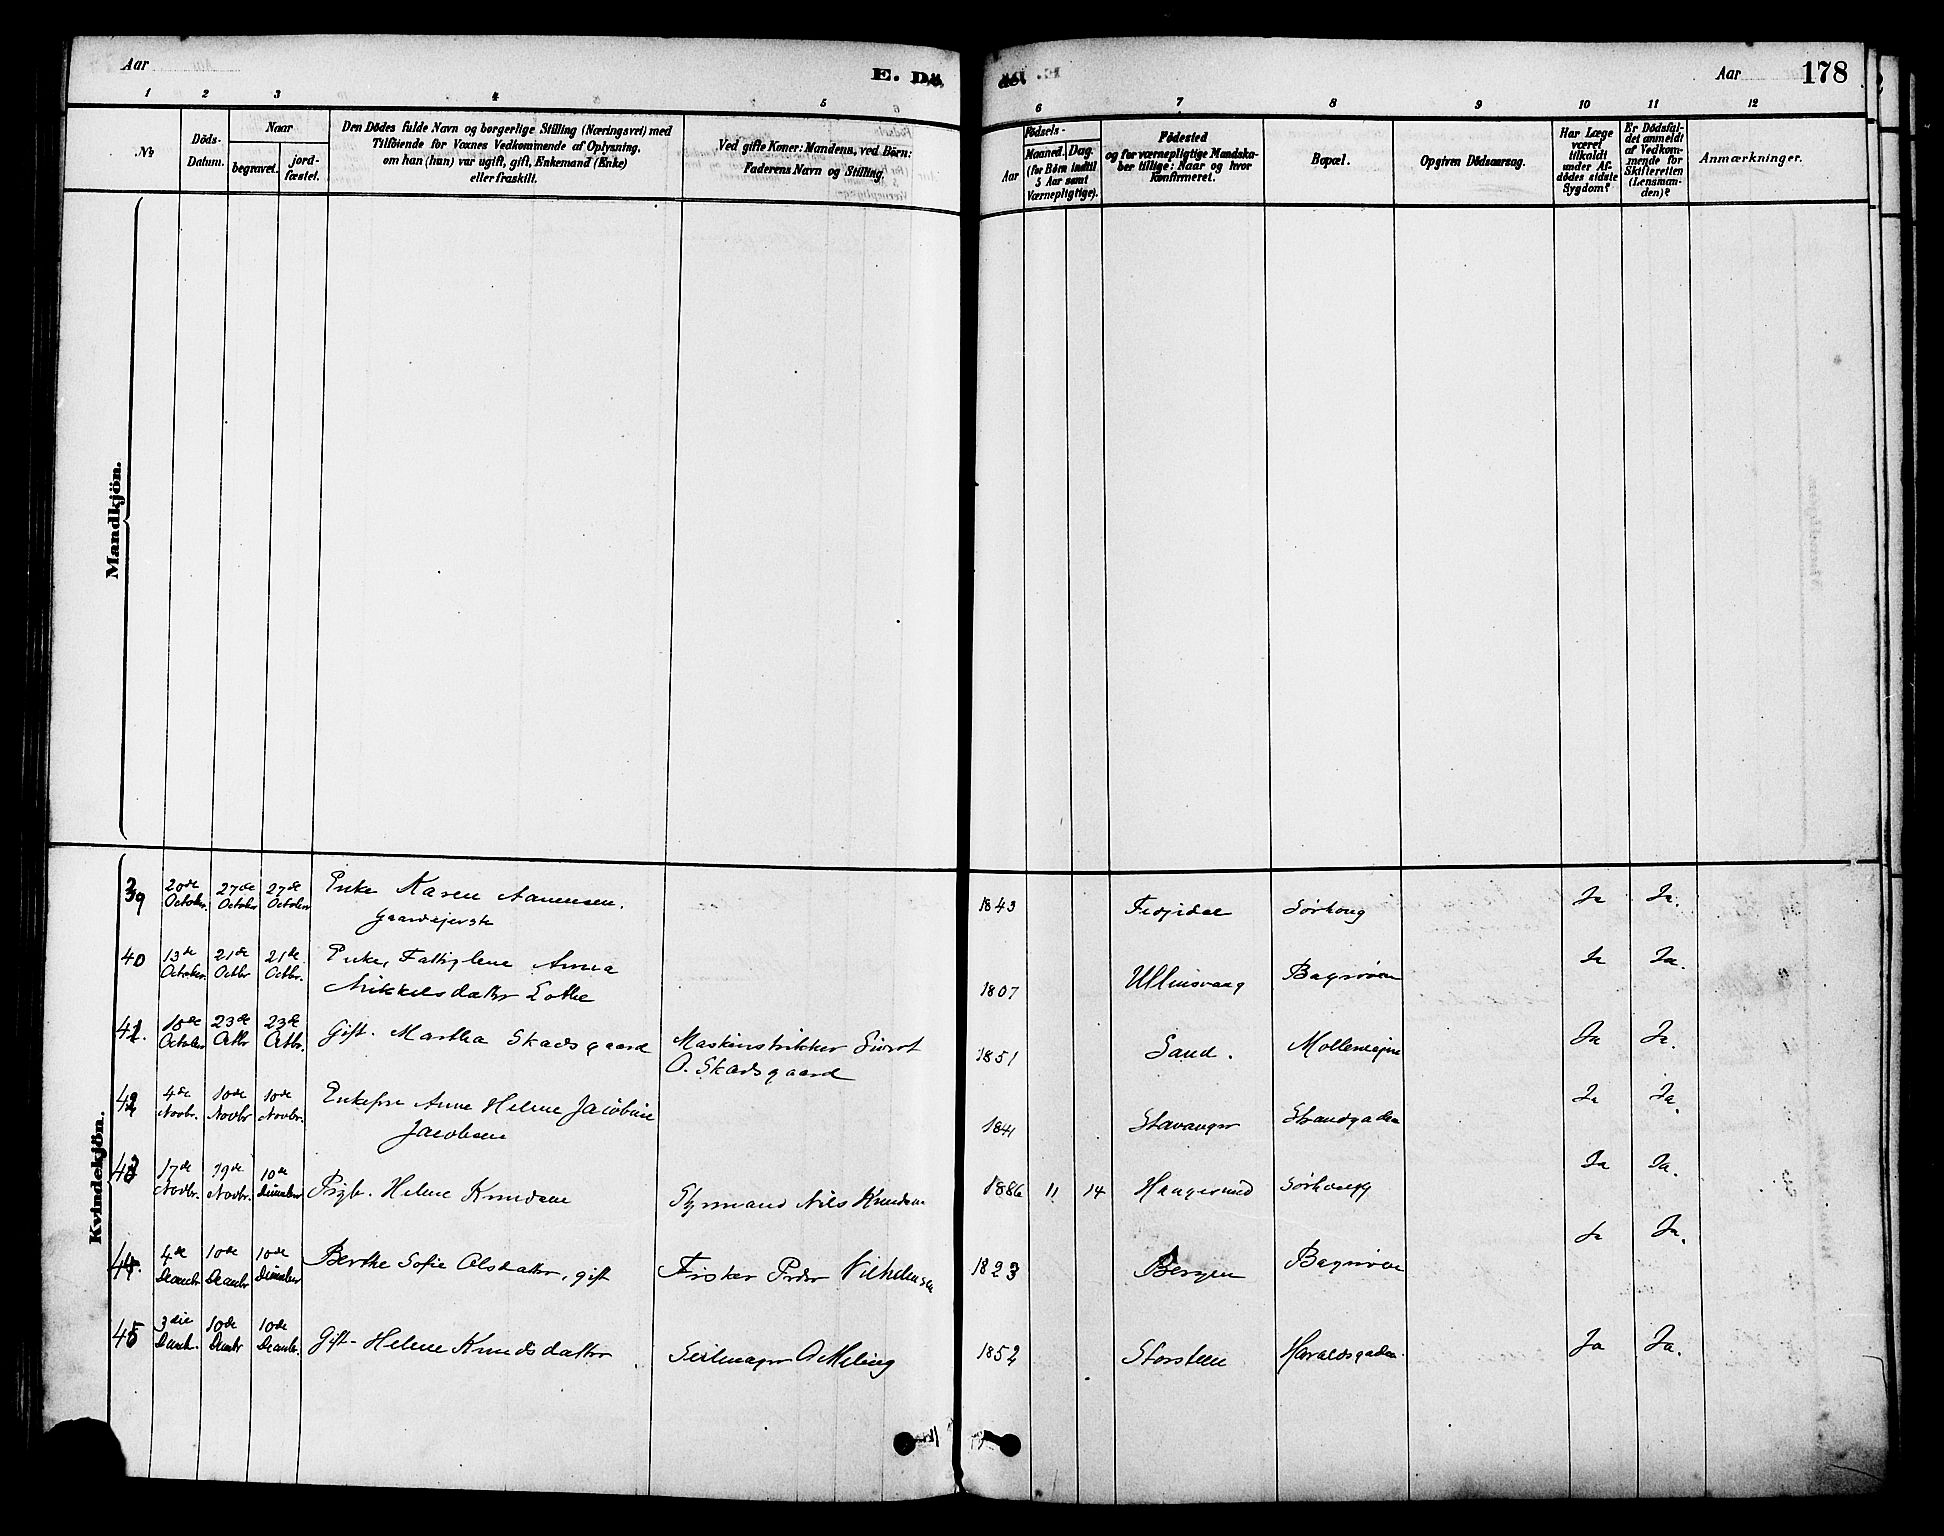 Aar
E. Dö-
de.
Aar
178
1 2 3 4 5 6 7 8 9 10 11 12
No
Döds-
Datum.
Naar
begravet.
jord-
fæstet.
Den Dödes fulde Navn og borgerlige Stilling (Næringsvei) med
Tilföiende for Voxnes Vedkommende af Oplysning,
om han (hun) var ugift, gift, Enkemand (Enke)
eller fraskilt.
Ved gifte Koner: Mandens, ved Börn:
Faderens Navn og Stilling.
Födsels-
Aar
Maaned.
Dag.
(for Börn indtil
5 Aar samt
Værnepligtige).
Födested
og for værnepligtige Mandska-
ber tillige: Naar og hvor
Konfirmeret.
Bopæl.
Opgiven Dödsaarsag.
Har Læge
været
tilkaldt
under Af-
dödes sidste
Sygdom?
Er Dödsfal-
det anmeldt
af Vedkom-
mende for
Skifteretten
(Lensman-
den)?
Anmærkninger.
Mandkjön.
Kvindekjön.
39 20de October. 27de October 27de October Enke Karen Aanensen. 1843 Sörhoug Ja Ja.
Gaardejerske
40 13de October. 21de Octbr 21de Octbr. Enke, Fattiglem Anna 1807 Ullensvang Bagrøven Ja Ja.
Mikkelsdatter Lothe
41. 18de October 23de Octbr 23de Octbr. Gift. Martha Skadsgaard Maskinstrikker Sivert 1851 Sand. Møllerveien Ja Ja.
O. Skadsgaard
42 4de Novbr. 10de Novbr 10de Novbr. Enkefru Anne Helene Jacobine 1841 Stavanger Strandgaden Ja Ja.
Jacobsen
43 17de Novbr. 19de Novbr. 10de December Pigb. Helene Knudsen Styrmand Nils Knudsen 1886 11 14 Haugesund Sörhaug Ja Ja.
44. 4de Decembr 10de Decembr 10de December Berthe Sofie Olsdatter, gift Fisker Peder Vilhelmsen 1823 Bergen Bagrøven Ja Ja.
45 3die Decmb. 10de Decmbr 10de Decembr. Gift. Helene Knudsdatter Seilmager O Meling 1852 Storsteen Haraldsgaden. Ja Ja.